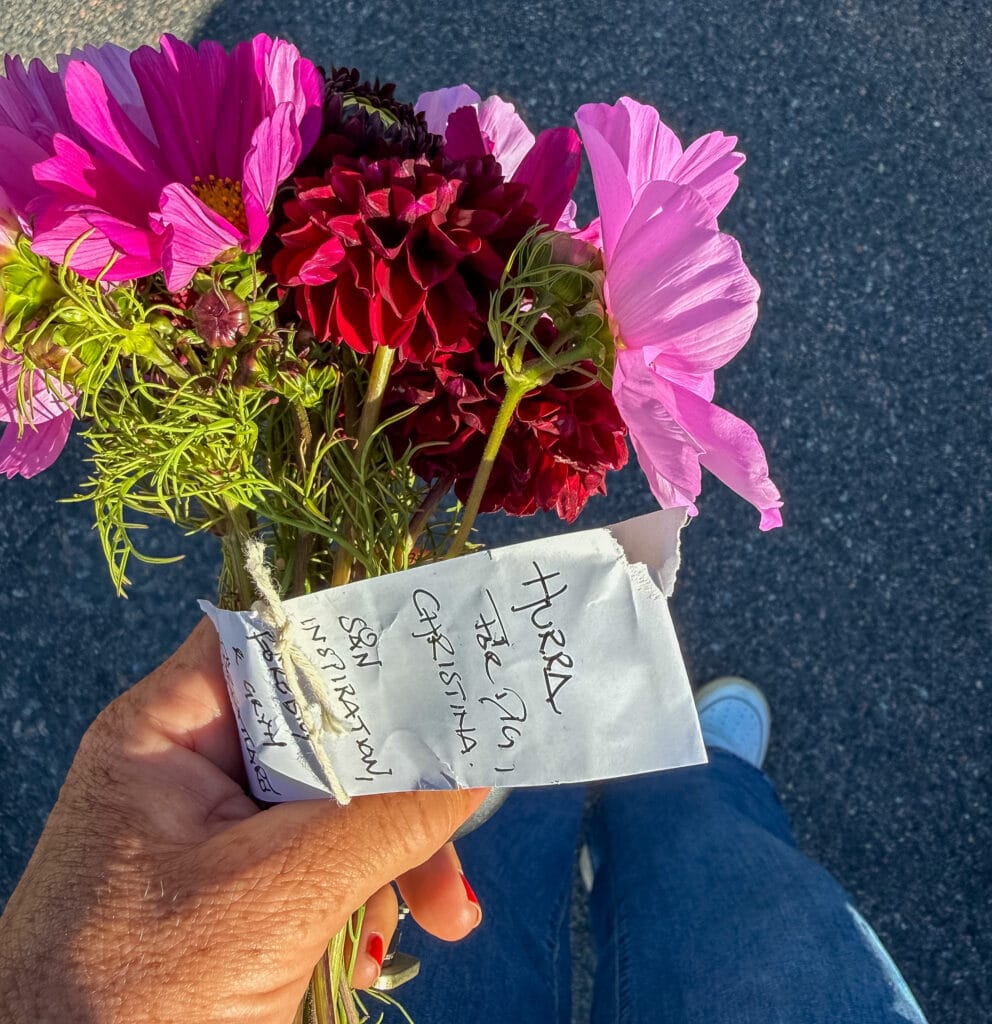 HURRA
FÖR DIG,
CHRISTINA.
SÅN
INSPIRATION,
& GRYM